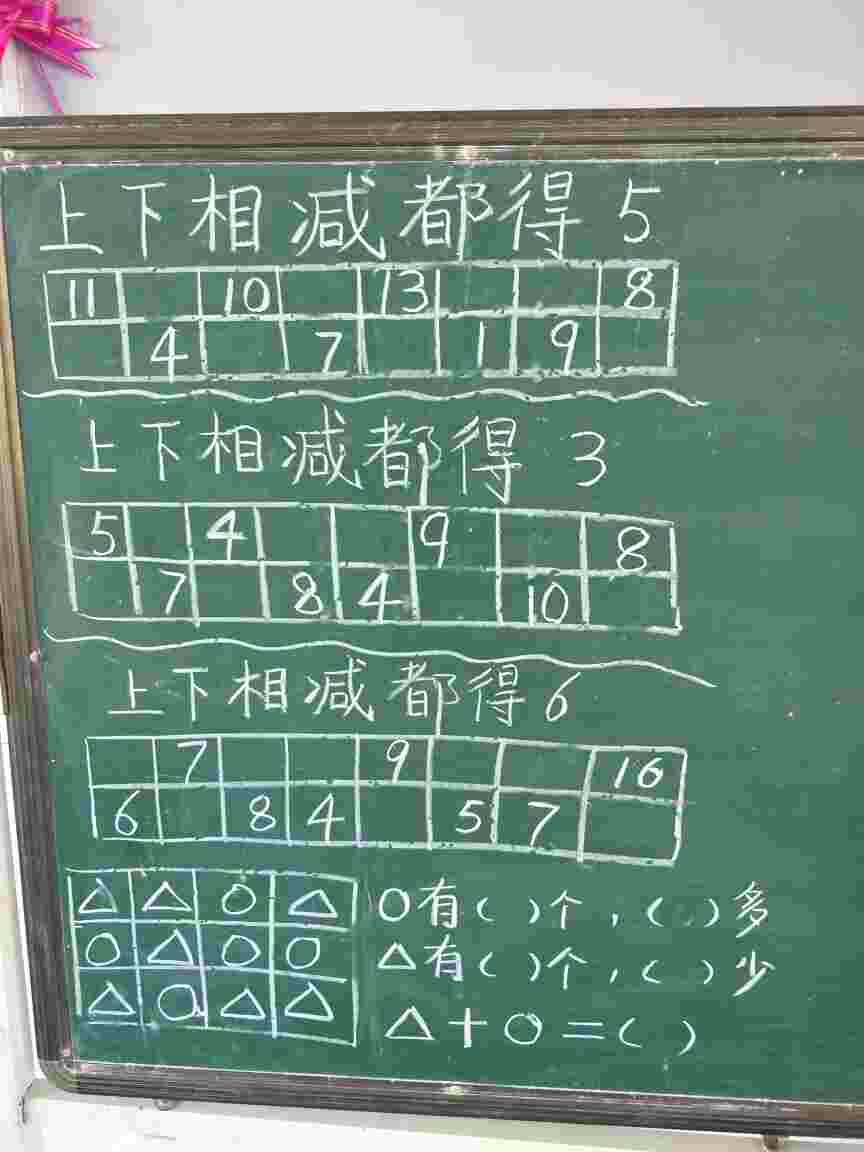 上下相减都得5
11 10 13 8
4 7 1 9
上下相减都得3
5 4 9 8
7 8 4 10
上下相减都得6
7 9 16
6 8 4 5 7
△ △ ○ △
○ △ ○ ○
△ ○ △ △
○有( )个,( )多
△有( )个,( )少
△+○=( )